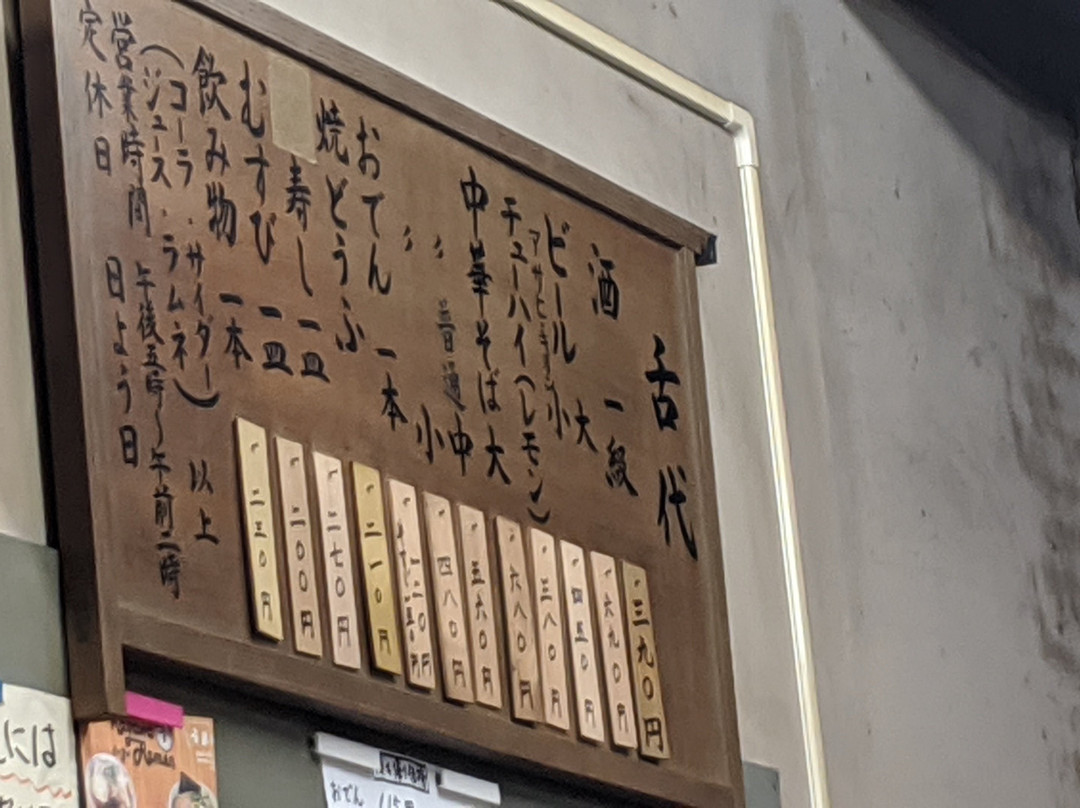 古代
酒 一級
ビール 大
アサヒ 小
チューハイ(レモン)
中華そば 大
〃 普通 中
〃 小
おでん 一本
焼どうふ
寿し 一皿
むすび 一皿
飲み物 一本
(コーラ・サイダー
ジュース・ラムネ)
以上
営業時間 午後五時〜午前二時
定休日 日よう日
三九〇円
六九〇円
四五〇円
三八〇円
六八〇円
五六〇円
四八〇円
二一〇円
二七〇円
二〇〇円
二三〇円
には
おでん